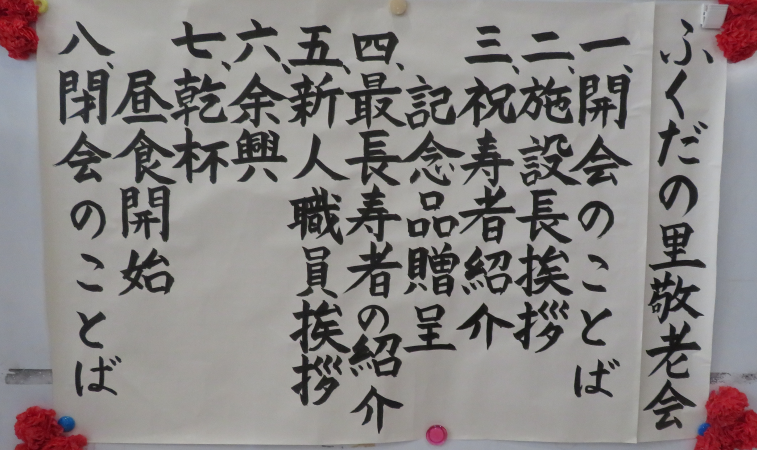 ふくだの里敬老会
一、開会のことば
二、施設長挨拶
三、祝寿者紹介
記念品贈呈
四、最長寿者の紹介
五、新人職員挨拶
六、余興
七、乾杯
昼食開始
八、閉会のことば